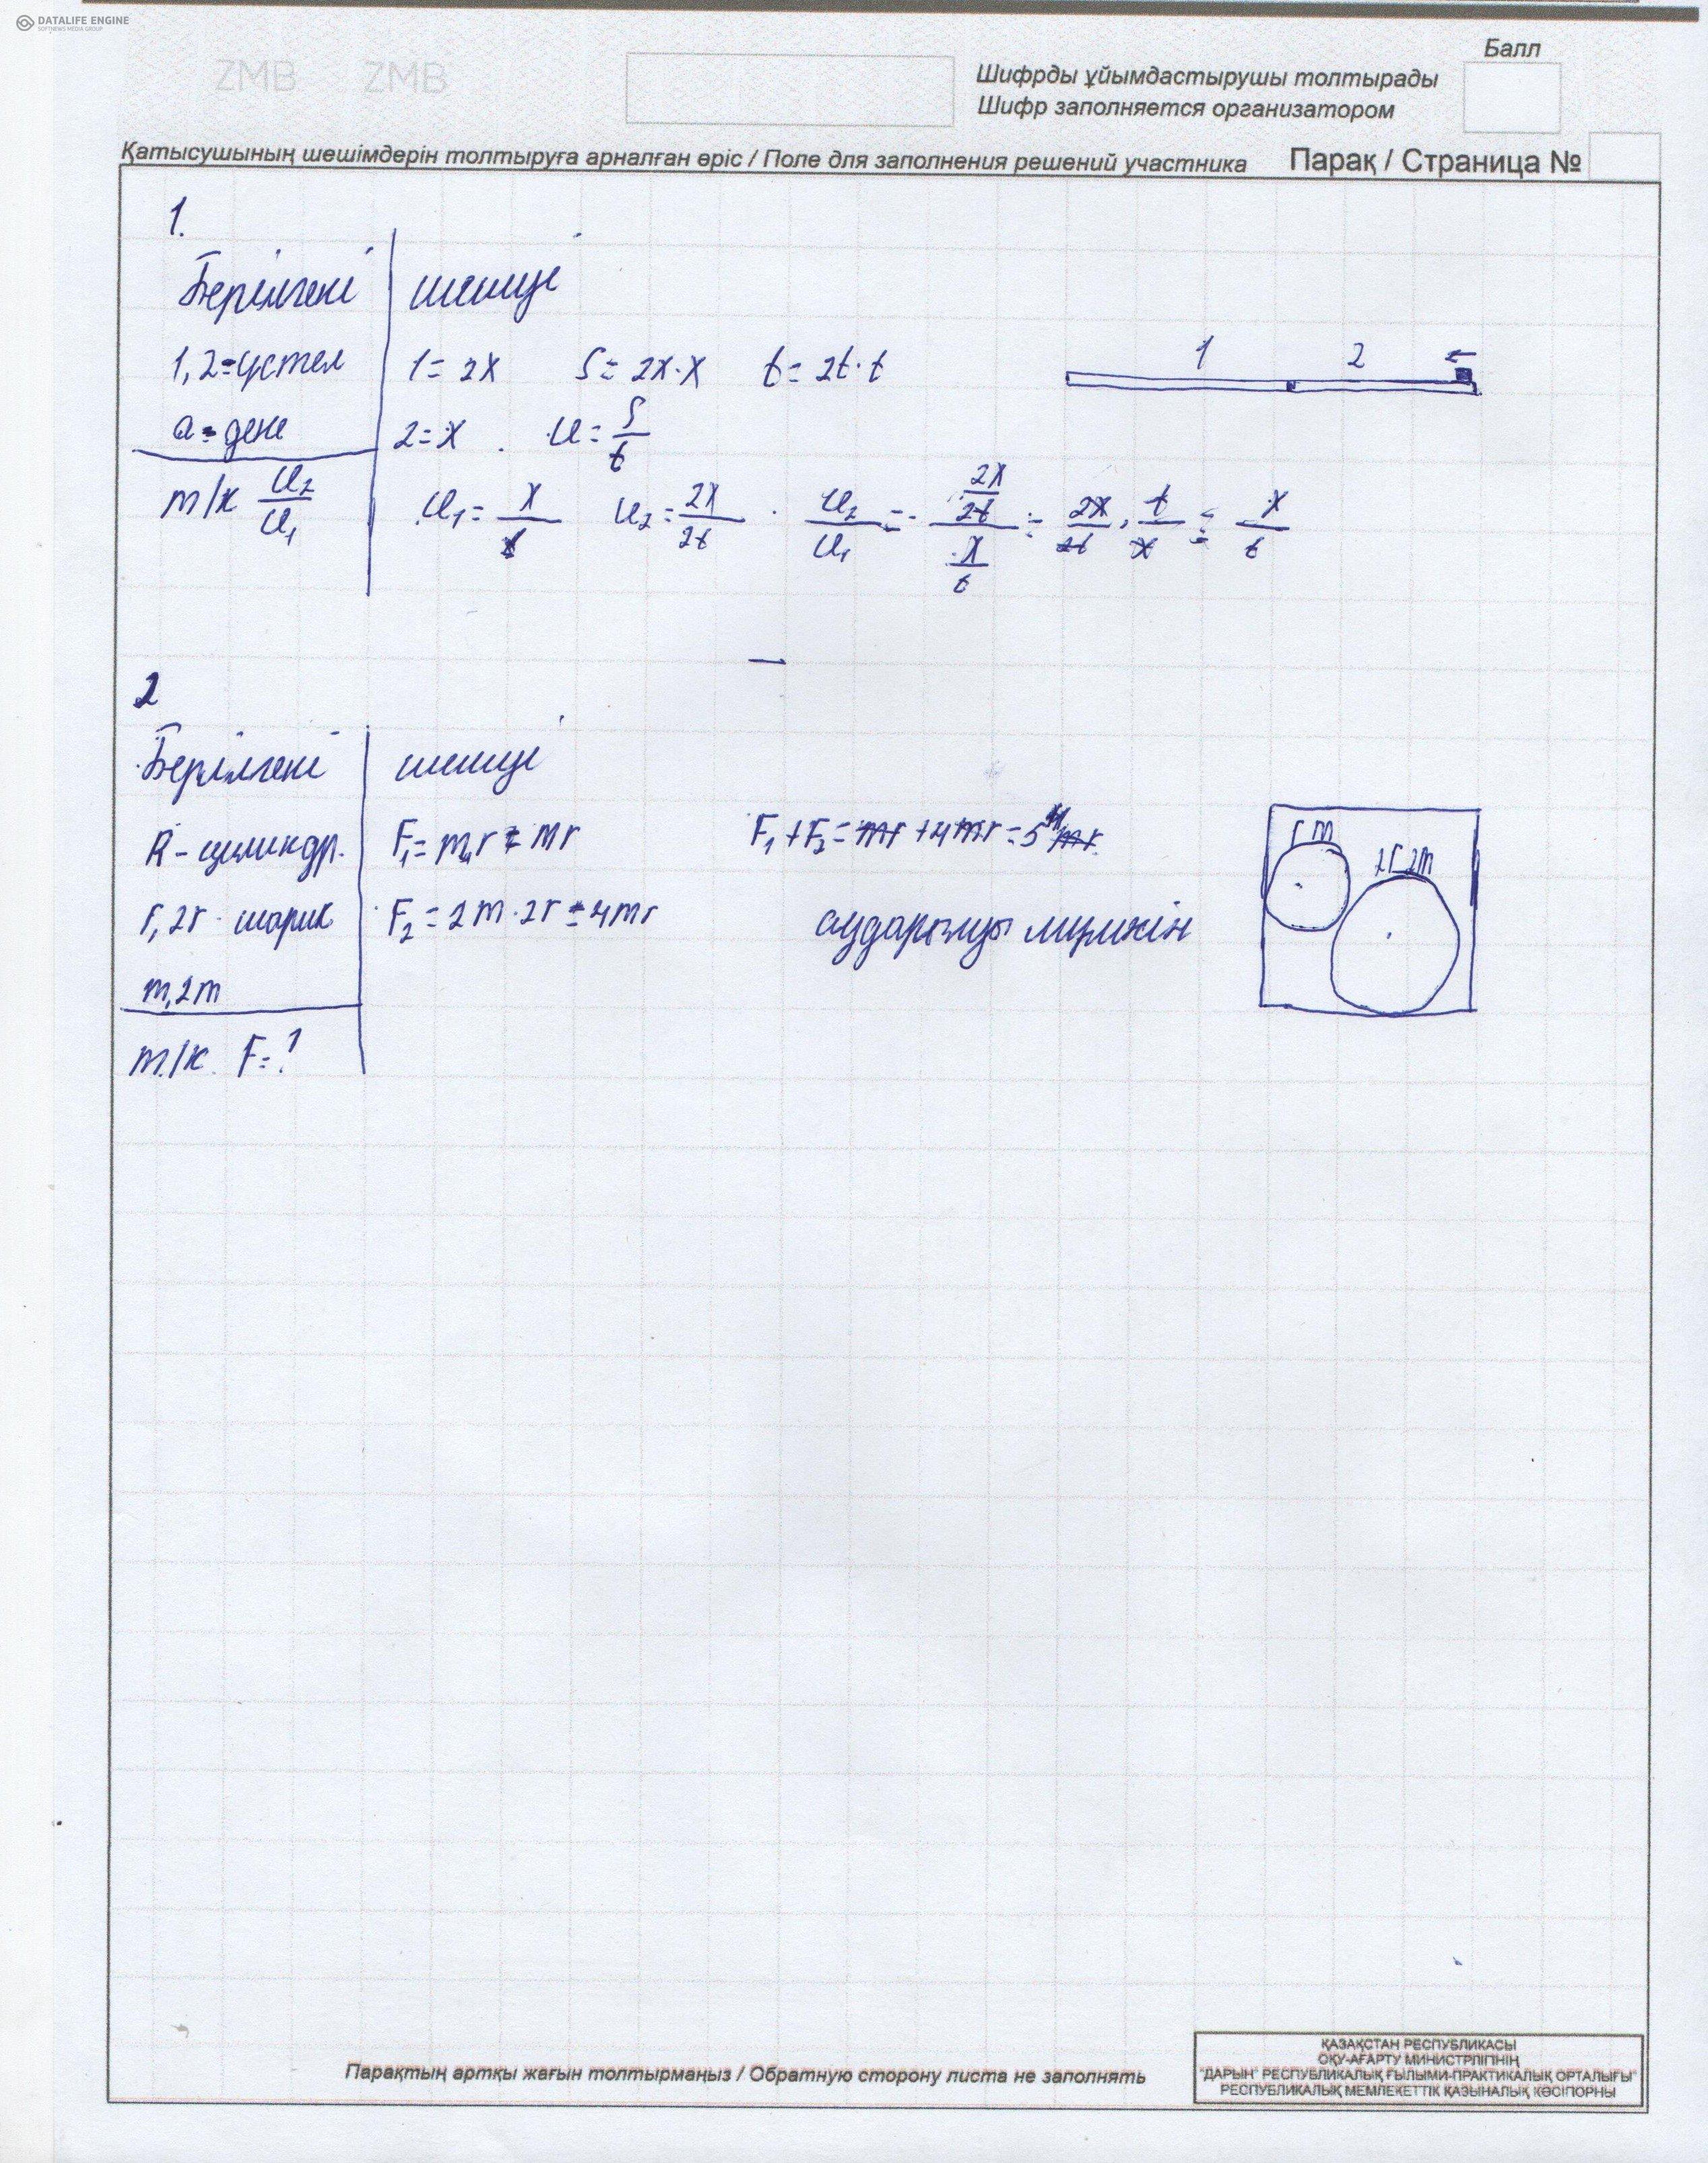 DATALIFE ENGINE
SOFTNEWS MEDIA GROUP
ZMB ZMB
Балл
Шифрды ұйымдастырушы толтырады
Шифр заполняется организатором
Қатысушының шешімдерін толтыруға арналған өріс / Поле для заполнения решений участника Парақ / Страница №
1.
Берілгені шешуі
1,2=үстел 1=2x S=2x·x t=2t·t 1 2
a=дене 2=x u=S/t
т/к u₂/u₁ u₁=x/t u₂=2x/2t u₂/u₁=(2x/2t)/(x/t)=2x/2t·t/x=x/t
2
Берілгені шешуі
R-цилиндр. F₁=m·r=mr F₁+F₂=mr+4mr=5mr r m 2r 2m
r,2r шарик F₂=2m·2r=4mr аударылуы мүмкін
m,2m
т/к. F=?
Парақтың артқы жағын толтырмаңыз / Обратную сторону листа не заполнять
ҚАЗАҚСТАН РЕСПУБЛИКАСЫ
ОҚУ-АҒАРТУ МИНИСТРЛІГІНІҢ
"ДАРЫН" РЕСПУБЛИКАЛЫҚ ҒЫЛЫМИ-ПРАКТИКАЛЫҚ ОРТАЛЫҒЫ"
РЕСПУБЛИКАЛЫҚ МЕМЛЕКЕТТІК ҚАЗЫНАЛЫҚ КӘСІПОРНЫ